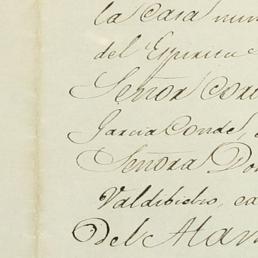 la casa num
del Espiritu
Señor Con
Garcia Conde,
Señora Do
Valdibielso, ca
Del Mar